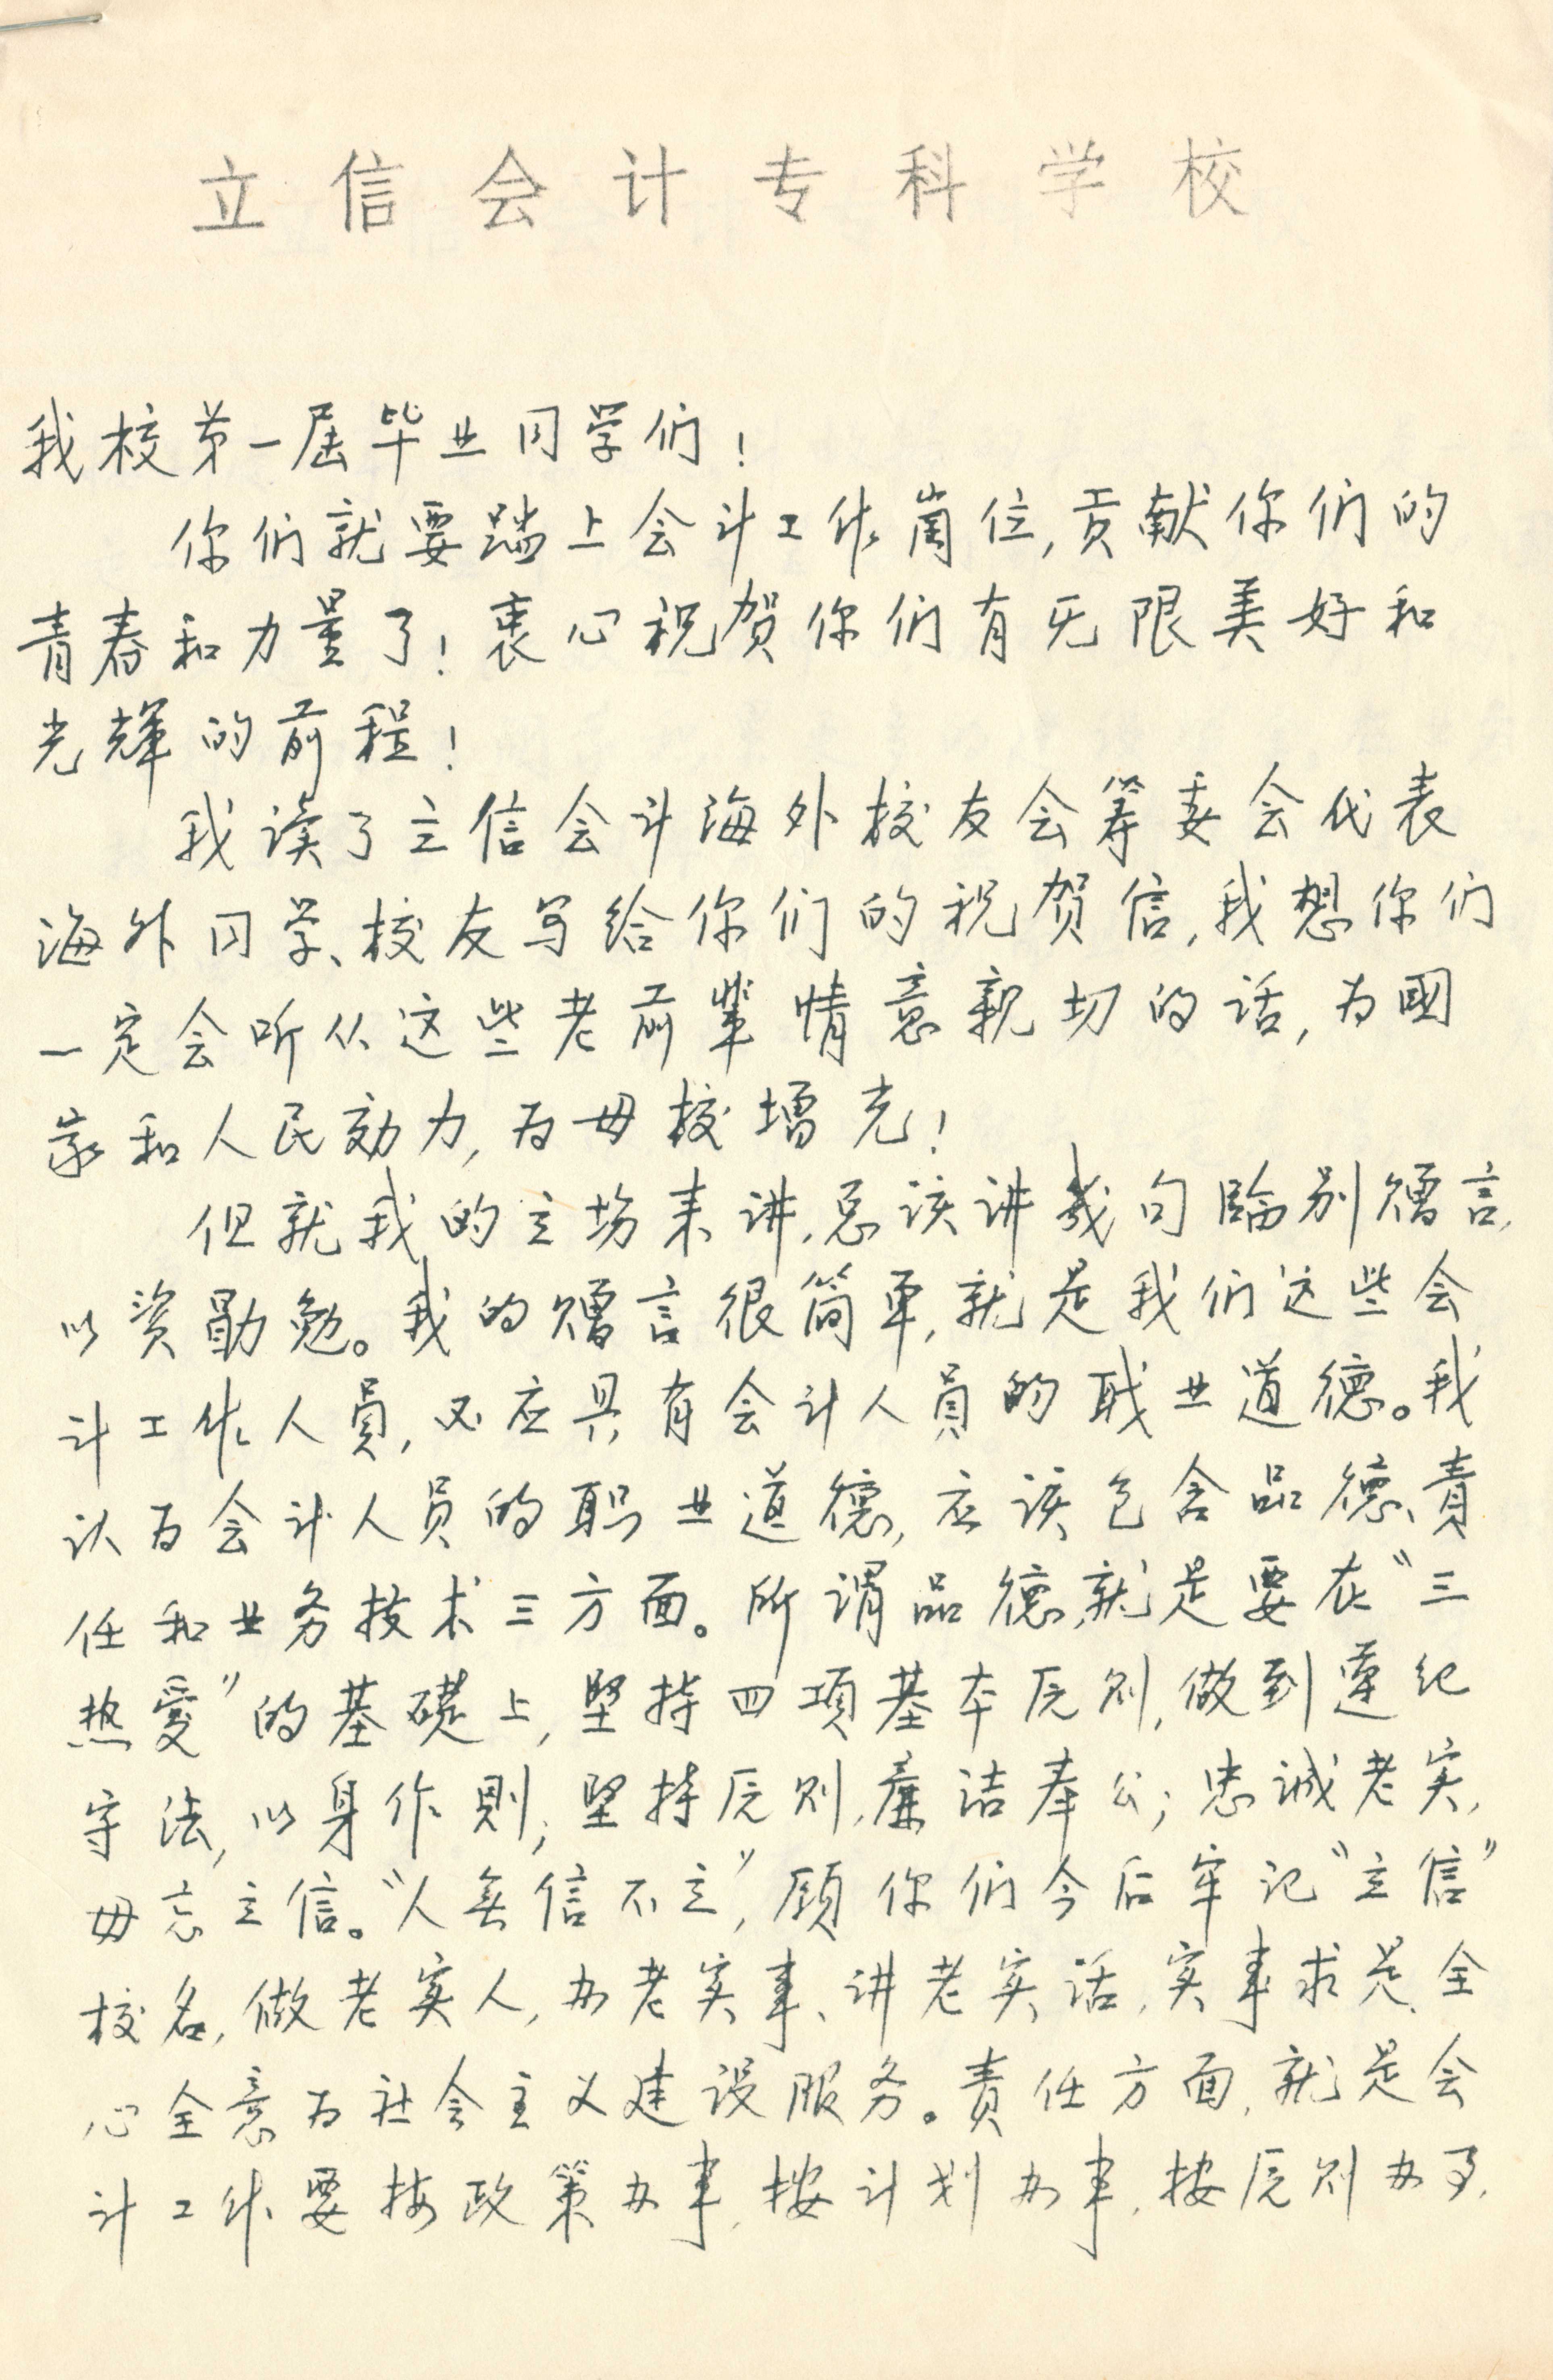 立信会计专科学校
我校第一届毕业同学们！
你们就要踏上会计工作岗位，贡献你们的
青春和力量了！衷心祝贺你们有无限美好和
光辉的前程！
我读了立信会计海外校友会筹委会代表
海外同学、校友写给你们的祝贺信，我想你们
一定会听从这些老前辈情意亲切的话，为國
家和人民効力，为母校增光！
但就我的立场来讲，总该讲几句临别赠言，
以资勖勉。我的赠言很简单，就是我们这些会
计工作人员，必应具有会计人員的职业道德。我
认为会计人员的职业道德，应该包含品德、责
任和业务技术三方面。所谓品德，就是要在“三
热爱”的基礎上，坚持四項基本原则，做到遵纪
守法，以身作則；坚持原则，廉洁奉公；忠诚老实，
毋忘立信。“人無信不立”，願你们今后牢记“立信”
校名，做老实人，办老实事、讲老实话，实事求是，全
心全意为社会主义建设服务。责任方面，就是会
计工作要按政策办事，按计划办事，按原则办事，